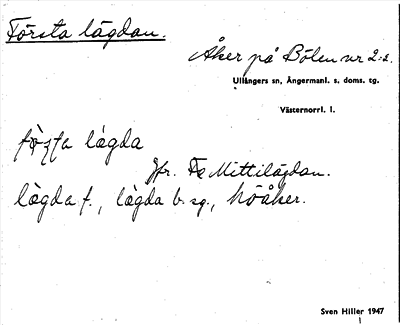 Första lägdan.
Åker på Bölen nr 2:2.
Ullångers sn, Ångermanl. s. doms. tg.
Västernorrl. l.
lägda
Jfr. Mittilägdan.
lägda f., lägda b. sg., höåker.
Sven Hiller 1947